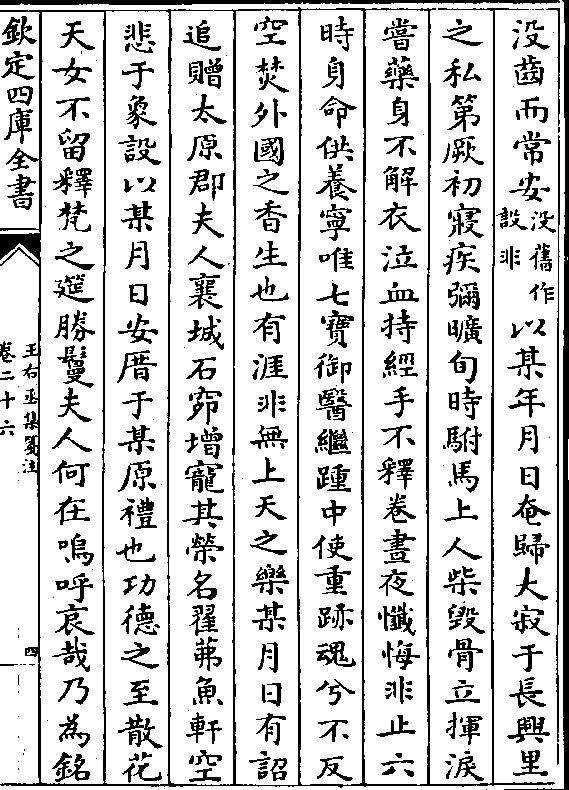 没齒而常安没舊作設非以某年月日奄歸大寂于長興里
之私第厥初寢疾彌曠旬時駙馬上人柴毀骨立揮淚
嘗藥身不解衣泣血持經手不釋卷晝夜懺悔非止六
時身命供養寧唯七寶御醫繼踵中使重跡魂兮不反
空焚外國之香生也有涯非無上天之樂某月日有詔
追贈太原郡夫人襄城石窌增寵其榮名翟茀魚軒空
悲于象設以某月日安厝于某原禮也功德之至散花
天女不留釋梵之筵勝鬘夫人何在嗚呼哀哉乃為銘
欽定四庫全書
王右丞集箋注
卷二十六
四